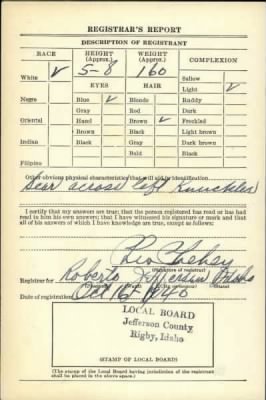 REGISTRAR'S REPORT
DESCRIPTION OF REGISTRANT
RACE HEIGHT (Approx.) WEIGHT (Approx.) COMPLEXION
White ✓ 5-8 160 Sallow
EYES HAIR Light ✓
Negro Blue ✓ Blonde Ruddy
Gray Red Dark
Oriental Hazel Brown ✓ Freckled
Brown Black Light brown
Indian Black Gray Dark brown
Bald Black
Filipino
Other obvious physical characteristics that will aid in identification
Scar across left Knuckles
I certify that my answers are true; that the person registered has read or has had
read to him his own answers; that I have witnessed his signature or mark and that
all of his answers of which I have knowledge are true, except as follows:
Leo
(Signature of registrar)
Registrar for Roberts Jefferson Idaho
Date of registration Oct 16 1940
LOCAL BOARD
Jefferson County
Rigby, Idaho
(STAMP OF LOCAL BOARD)
(The stamp of the Local Board having jurisdiction of the registrant
shall be placed in the above space.)